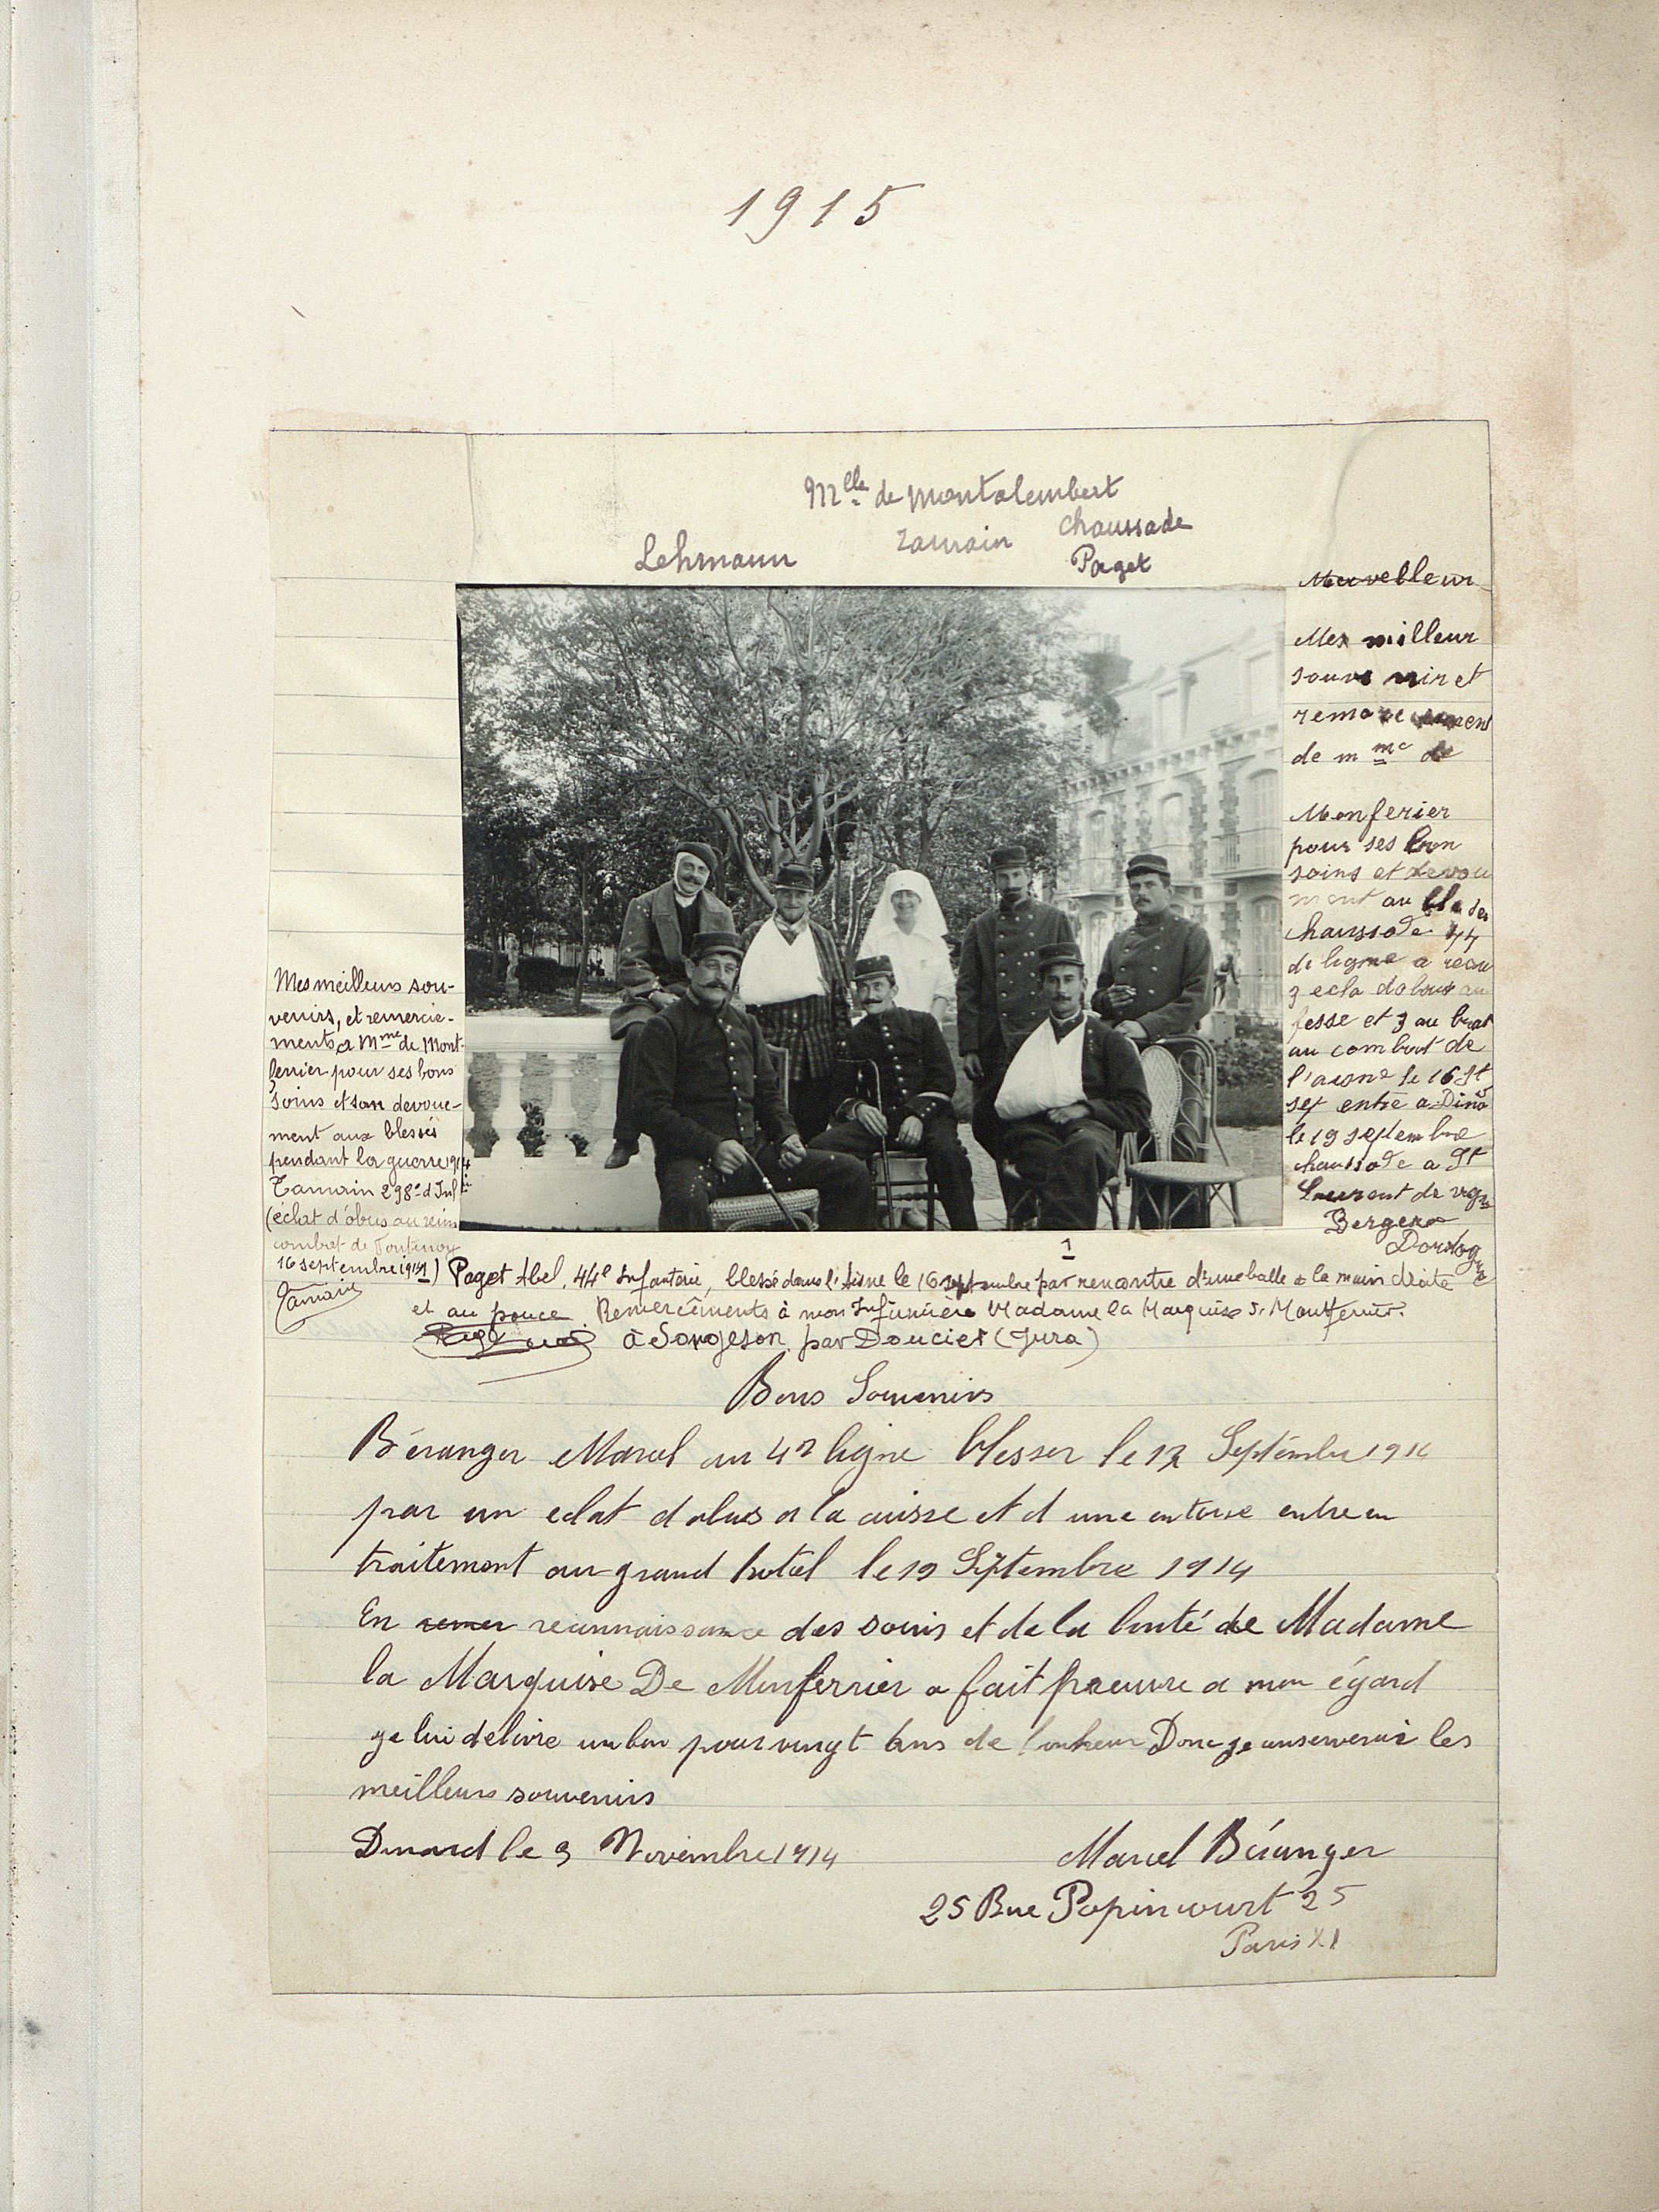 1915
Mlle de Montalembert
Lehmann
Tamain
Chaussade
Paget
Mes meilleurs sou-
venirs, et remercie-
ments a Mme de Mont-
ferrier pour ses bons
soins et son devoue-
ment aux blessés
pendant la guerre 1914
Tamain 298e d'Infie
(éclat d'obus au reins
combat de Fontenoy
16 septembre 1914)
Tamain
Mes milleur
souve nir et
de mme de
Monferier
pour ses bon
soins et devou
ment au
chaussade 44
de ligne a recu
3 ecla dobus au
fesse et 3 au brat
au combat de
l'aisne le 16 St
sep entré a Dina
le 19 septembre
chaussade a St
Laurent de vigne
Bergera
Dordogne
1
Paget Abel, 44e Infanterie, blessé dans l'Aisne le 16 septembre par rencontre d'une balle a la main droite
et au pouce Remerciements à mon Infirmière Madame la Marquise de Montferrier.
à Songeson par Doucier (Jura)
Bons Souvenirs
Béranger Marcel au 42 ligne blesser le 12 Septémbre 1914
par un eclat dobus a la cuisse et d une entorse entre en
traitement au grand hotel le 19 Septembre 1914
En remer reconnaissance des soins et de la bonté de Madame
la Marquise De Monferrier a fait preuvre a mon égard
je lui delivre un bon pour vingt ans de bonheur Donc je conserverai les
meilleurs souvenirs
Dinard le 9 Novembre 1914
Marcel Béranger
25 Rue Popincourt 25
Paris XI